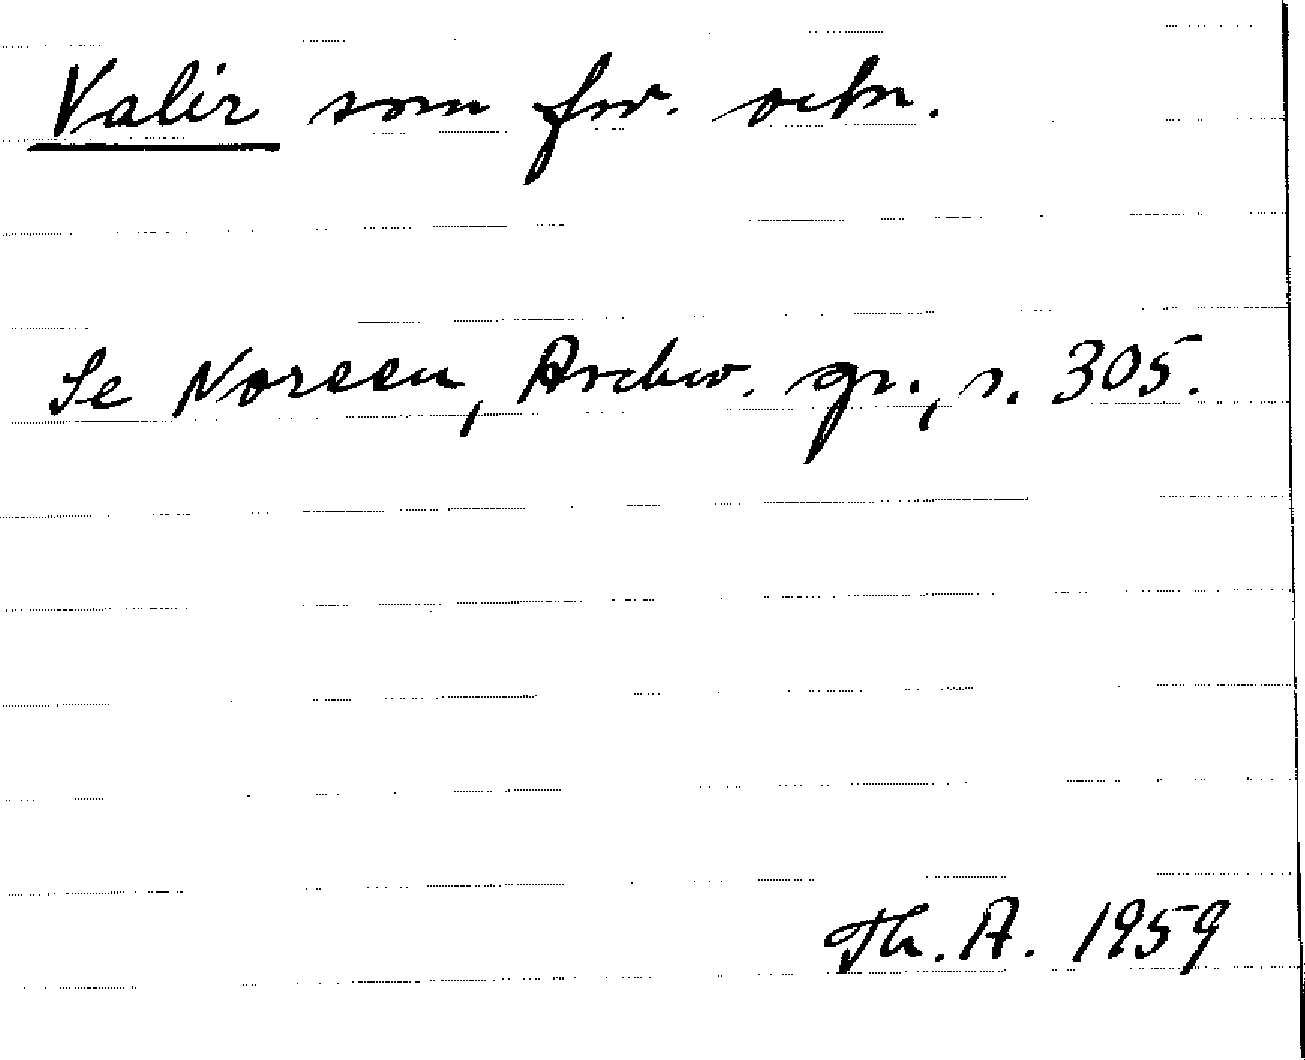 Valir som fsv. ortn.
Se Noreen, Aschw. gr., s. 305.
Th. A. 1959